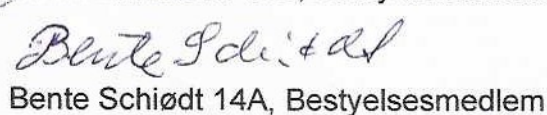 Bente Schiødt
Bente Schiødt 14A, Bestyelsesmedlem